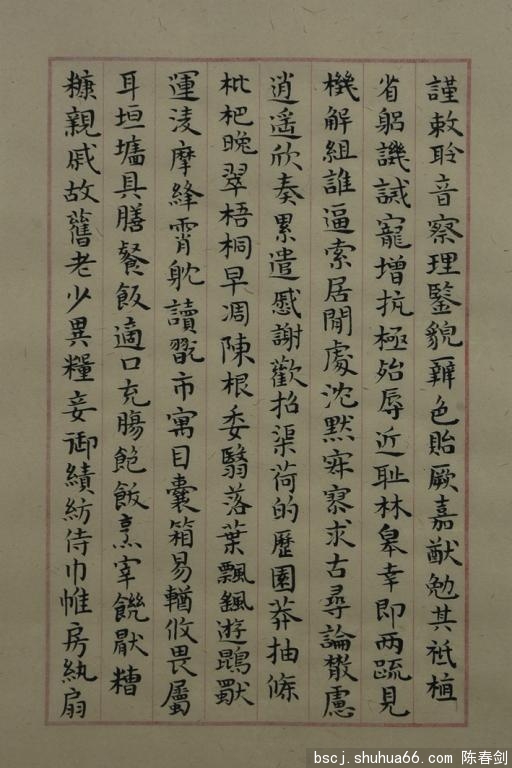 謹敕聆音察理鑒貌辨色貽厥嘉猷勉其祗植
省躬譏誡寵增抗極殆辱近耻林皋幸即两疏見
機解組誰逼索居閒處沈默寂寥求古尋論散慮
逍遥欣奏累遣慼謝歡招渠荷的歷園莽抽條
枇杷晚翠梧桐早凋陳根委翳落葉飄颻遊鵾獨
運凌摩絳霄耽讀翫市寓目囊箱易輶攸畏屬
耳垣墻具膳餐飯適口充腸飽飫烹宰饑厭糟
糠親戚故舊老少異糧妾御績紡侍巾帷房紈扇
bscj.shuhua66.com 陈春剑